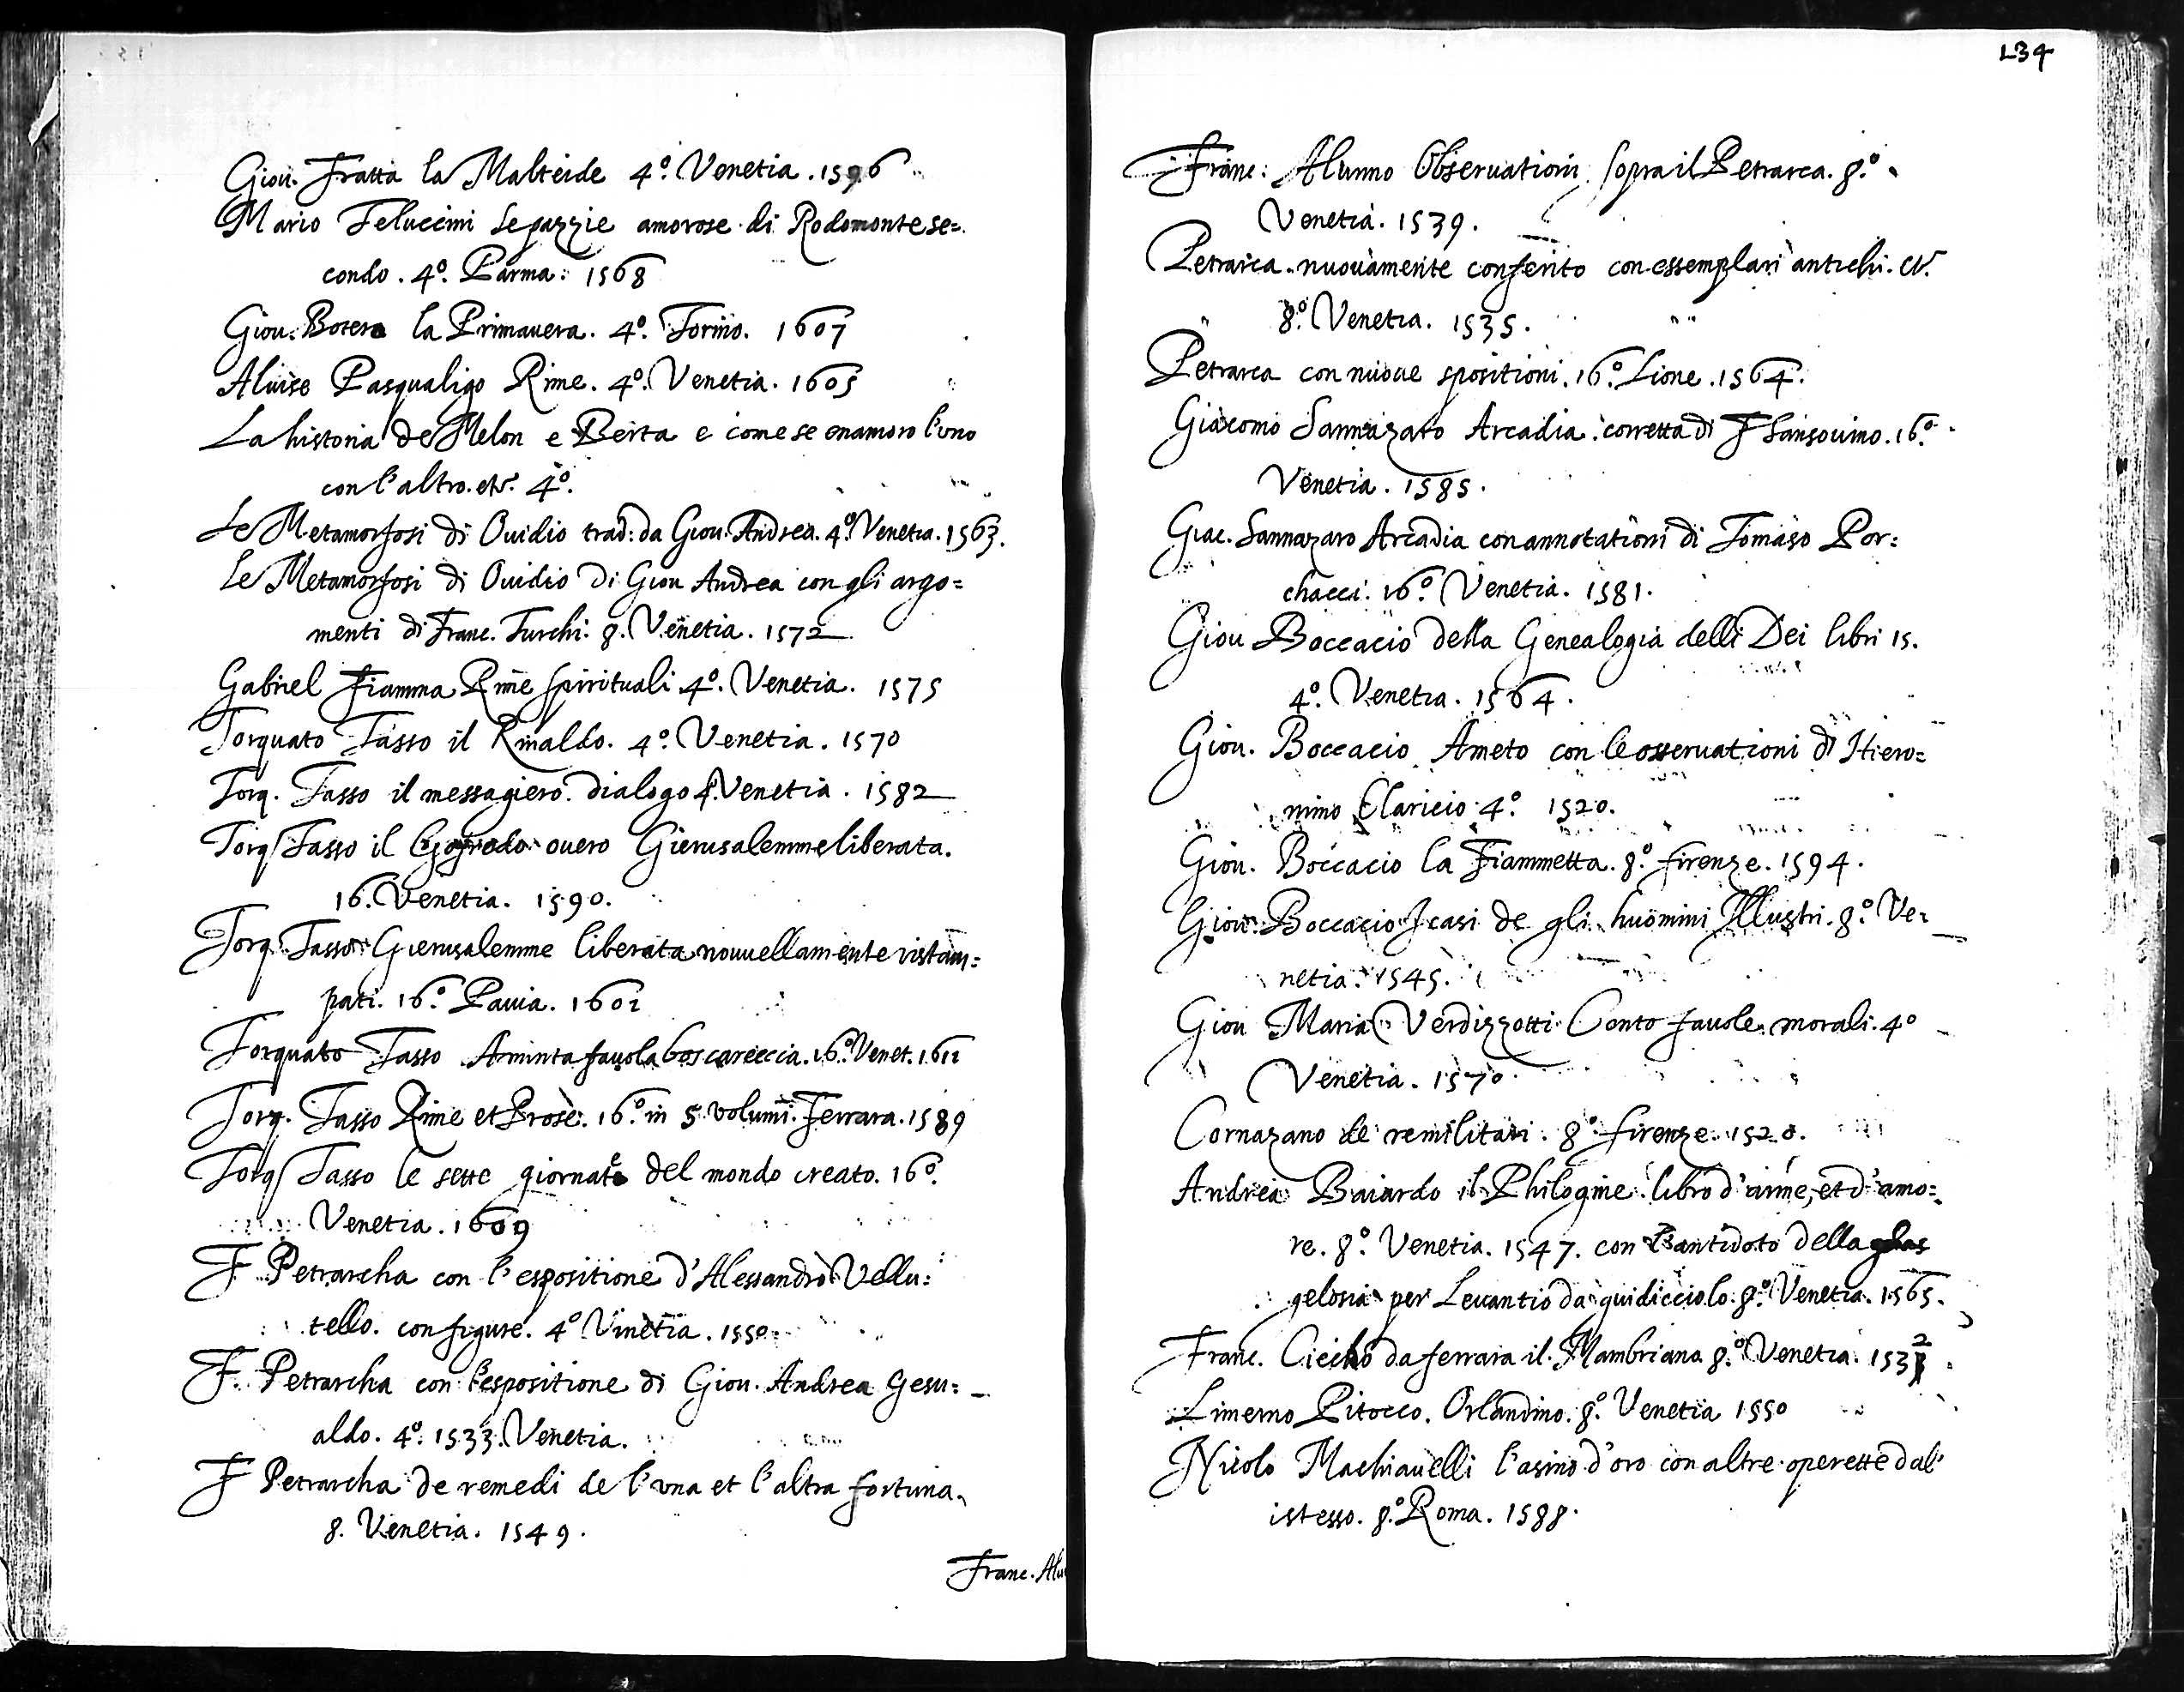 Giou. Fratta la Malteide 4º. Venetia. 1596
Mario Teluccini le pazzie amorose di Rodomonte se=
condo. 4º. Parma: 1568
Giou. Botero la Primauera. 4º. Torino. 1607
Aluise Pasqualigo Rime. 4º. Venetia. 1605
La historia de Melon e Berta e come se enamoro l'vno
con l'altro. etc. 4º.
Le Metamorfosi di Ouidio trad: da Giou. Andrea. 4º. Venetia. 1563.
Le Metamorfosi di Ouidio di Giou Andrea con gli argo=
menti di Franc. Turchi. 8. Venetia. 1572
Gabriel Fiamma Rime spirituali 4º. Venetia. 1575
Torquato Tasso il Rinaldo. 4º. Venetia. 1570
Torq. Tasso il messagiero. dialogo 4. Venetia. 1582
Torq Tasso il Gofredo ouero Gierusalemme liberata.
16. Venetia. 1590.
Torq. Tasso Gierusalemme liberata nouuellamente ristam=
pati. 16º. Pauia. 1601
Torquato Tasso Aminta fauola boscareccia. 16º. Venet. 1611
Torq. Tasso Rime et Prose. 16º. in 5 volumi. Ferrara. 1589
Torq Tasso le sette giornate del mondo creato. 16º.
Venetia. 1609
F. Petrarcha con l'espositione d'Alessandro Vellu=
tello. con figure. 4º Vinetia. 1550.
F. Petrarcha con l'espositione di Giou. Andrea Gesu=
aldo. 4º. 1533. Venetia.
F Petrarcha de remedi de l'vna et l'altra fortuna.
8. Venetia. 1549.
Franc. Alu
134
Franc: Alunno Obseruationi sopra il Petrarca. 8º.
Venetia. 1539.
Petrarca nuouamente conferito con essemplari antichi. etc.
8º. Venetia. 1535.
Petrarca con nuoue spositioni. 16º. Lione. 1564.
Giacomo Sannazaro Arcadia. corretta di F Sansouino. 16º.
Venetia. 1585.
Giac. Sannazaro Arcadia con annotationi di Tomaso Por=
chacci. 16º. Venetia. 1581.
Giou Boccacio della Genealogia delli Dei libri 15.
4º. Venetia. 1564.
Giou. Boccacio Ameto con le osseruationi di Hiero=
nimo Claricio 4º. 1520.
Giou. Boccacio la Fiammetta. 8º. firenze. 1594.
Giou. Boccacio I casi de gli huomini Illustri. 8º. Ve=
netia. 1545.
Giou Maria Verdizzotti Cento fauole morali. 4º
Venetia. 1570.
Cornazano de re militari. 8º. firenze. 1520.
Andrea Baiardo il Philogine. libro d'arme, et d'amo=
re. 8º. Venetia. 1547. con l'antidoto della
gelosia per Leuantio da guidicciolo. 8º. Venetia. 1565.
Franc. Ciecho da ferrara il Mambriano 8º. Venetia. 1532.
Limerno Pitocco. Orlandino. 8º. Venetia 1550
Nicolo Machiauelli l'asino d'oro con altre operette dal'
istesso. 8º. Roma. 1588.